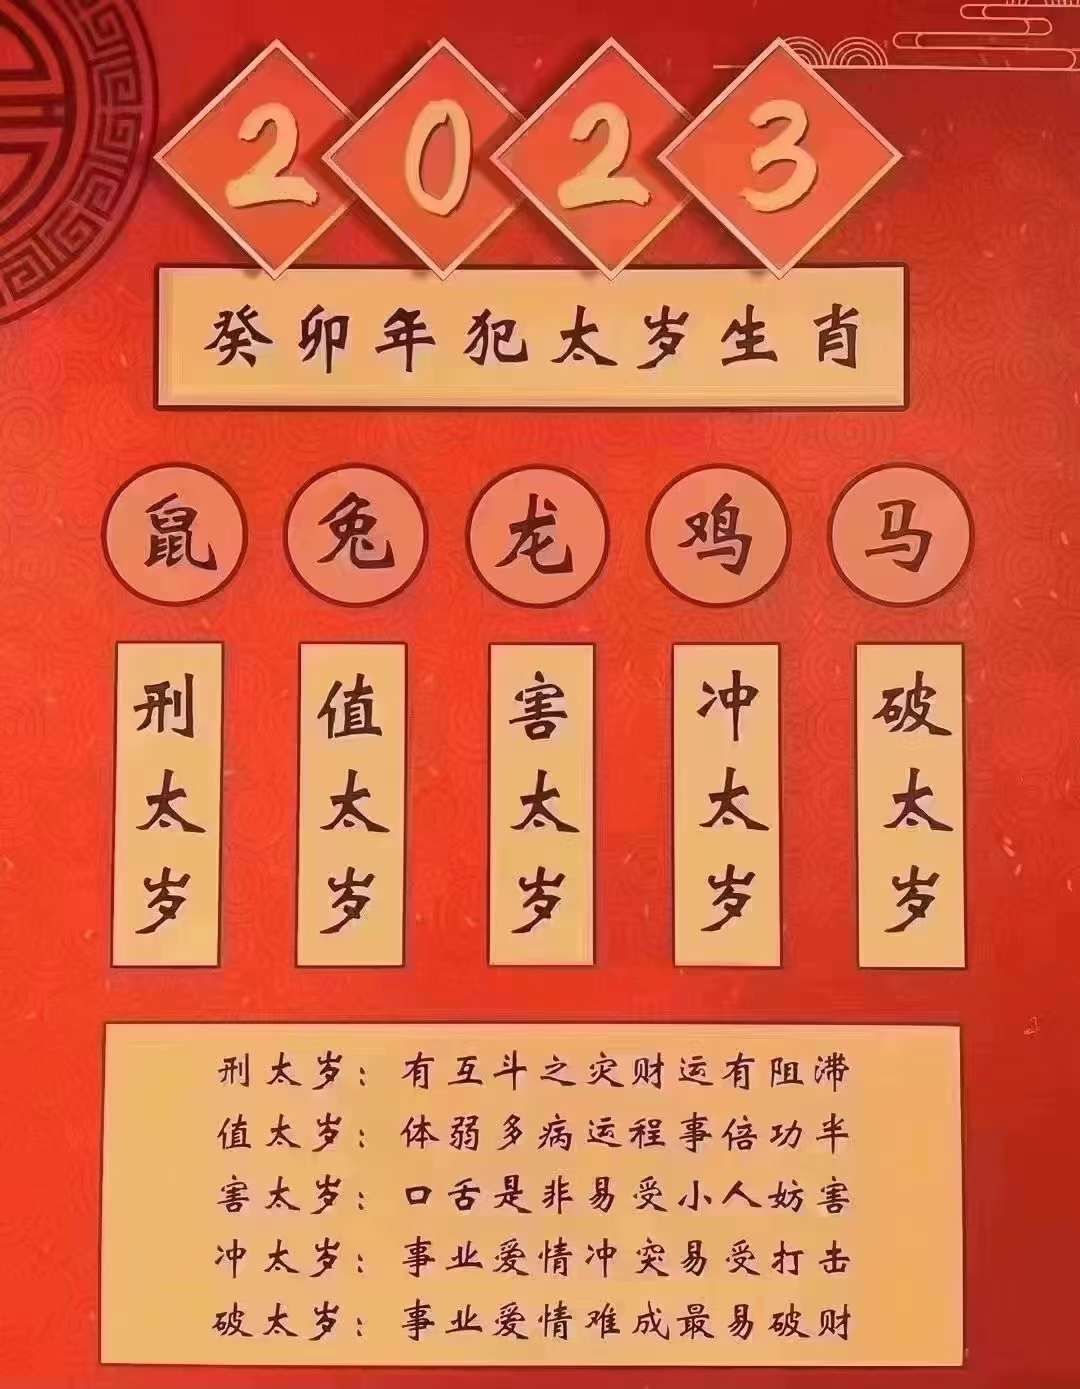 2023
癸卯年犯太岁生肖
鼠 兔 龙 鸡 马
刑太岁 值太岁 害太岁 冲太岁 破太岁
刑太岁：有互斗之灾财运有阻滞
值太岁：体弱多病运程事倍功半
害太岁：口舌是非易受小人妨害
冲太岁：事业爱情冲突易受打击
破太岁：事业爱情难成最易破财